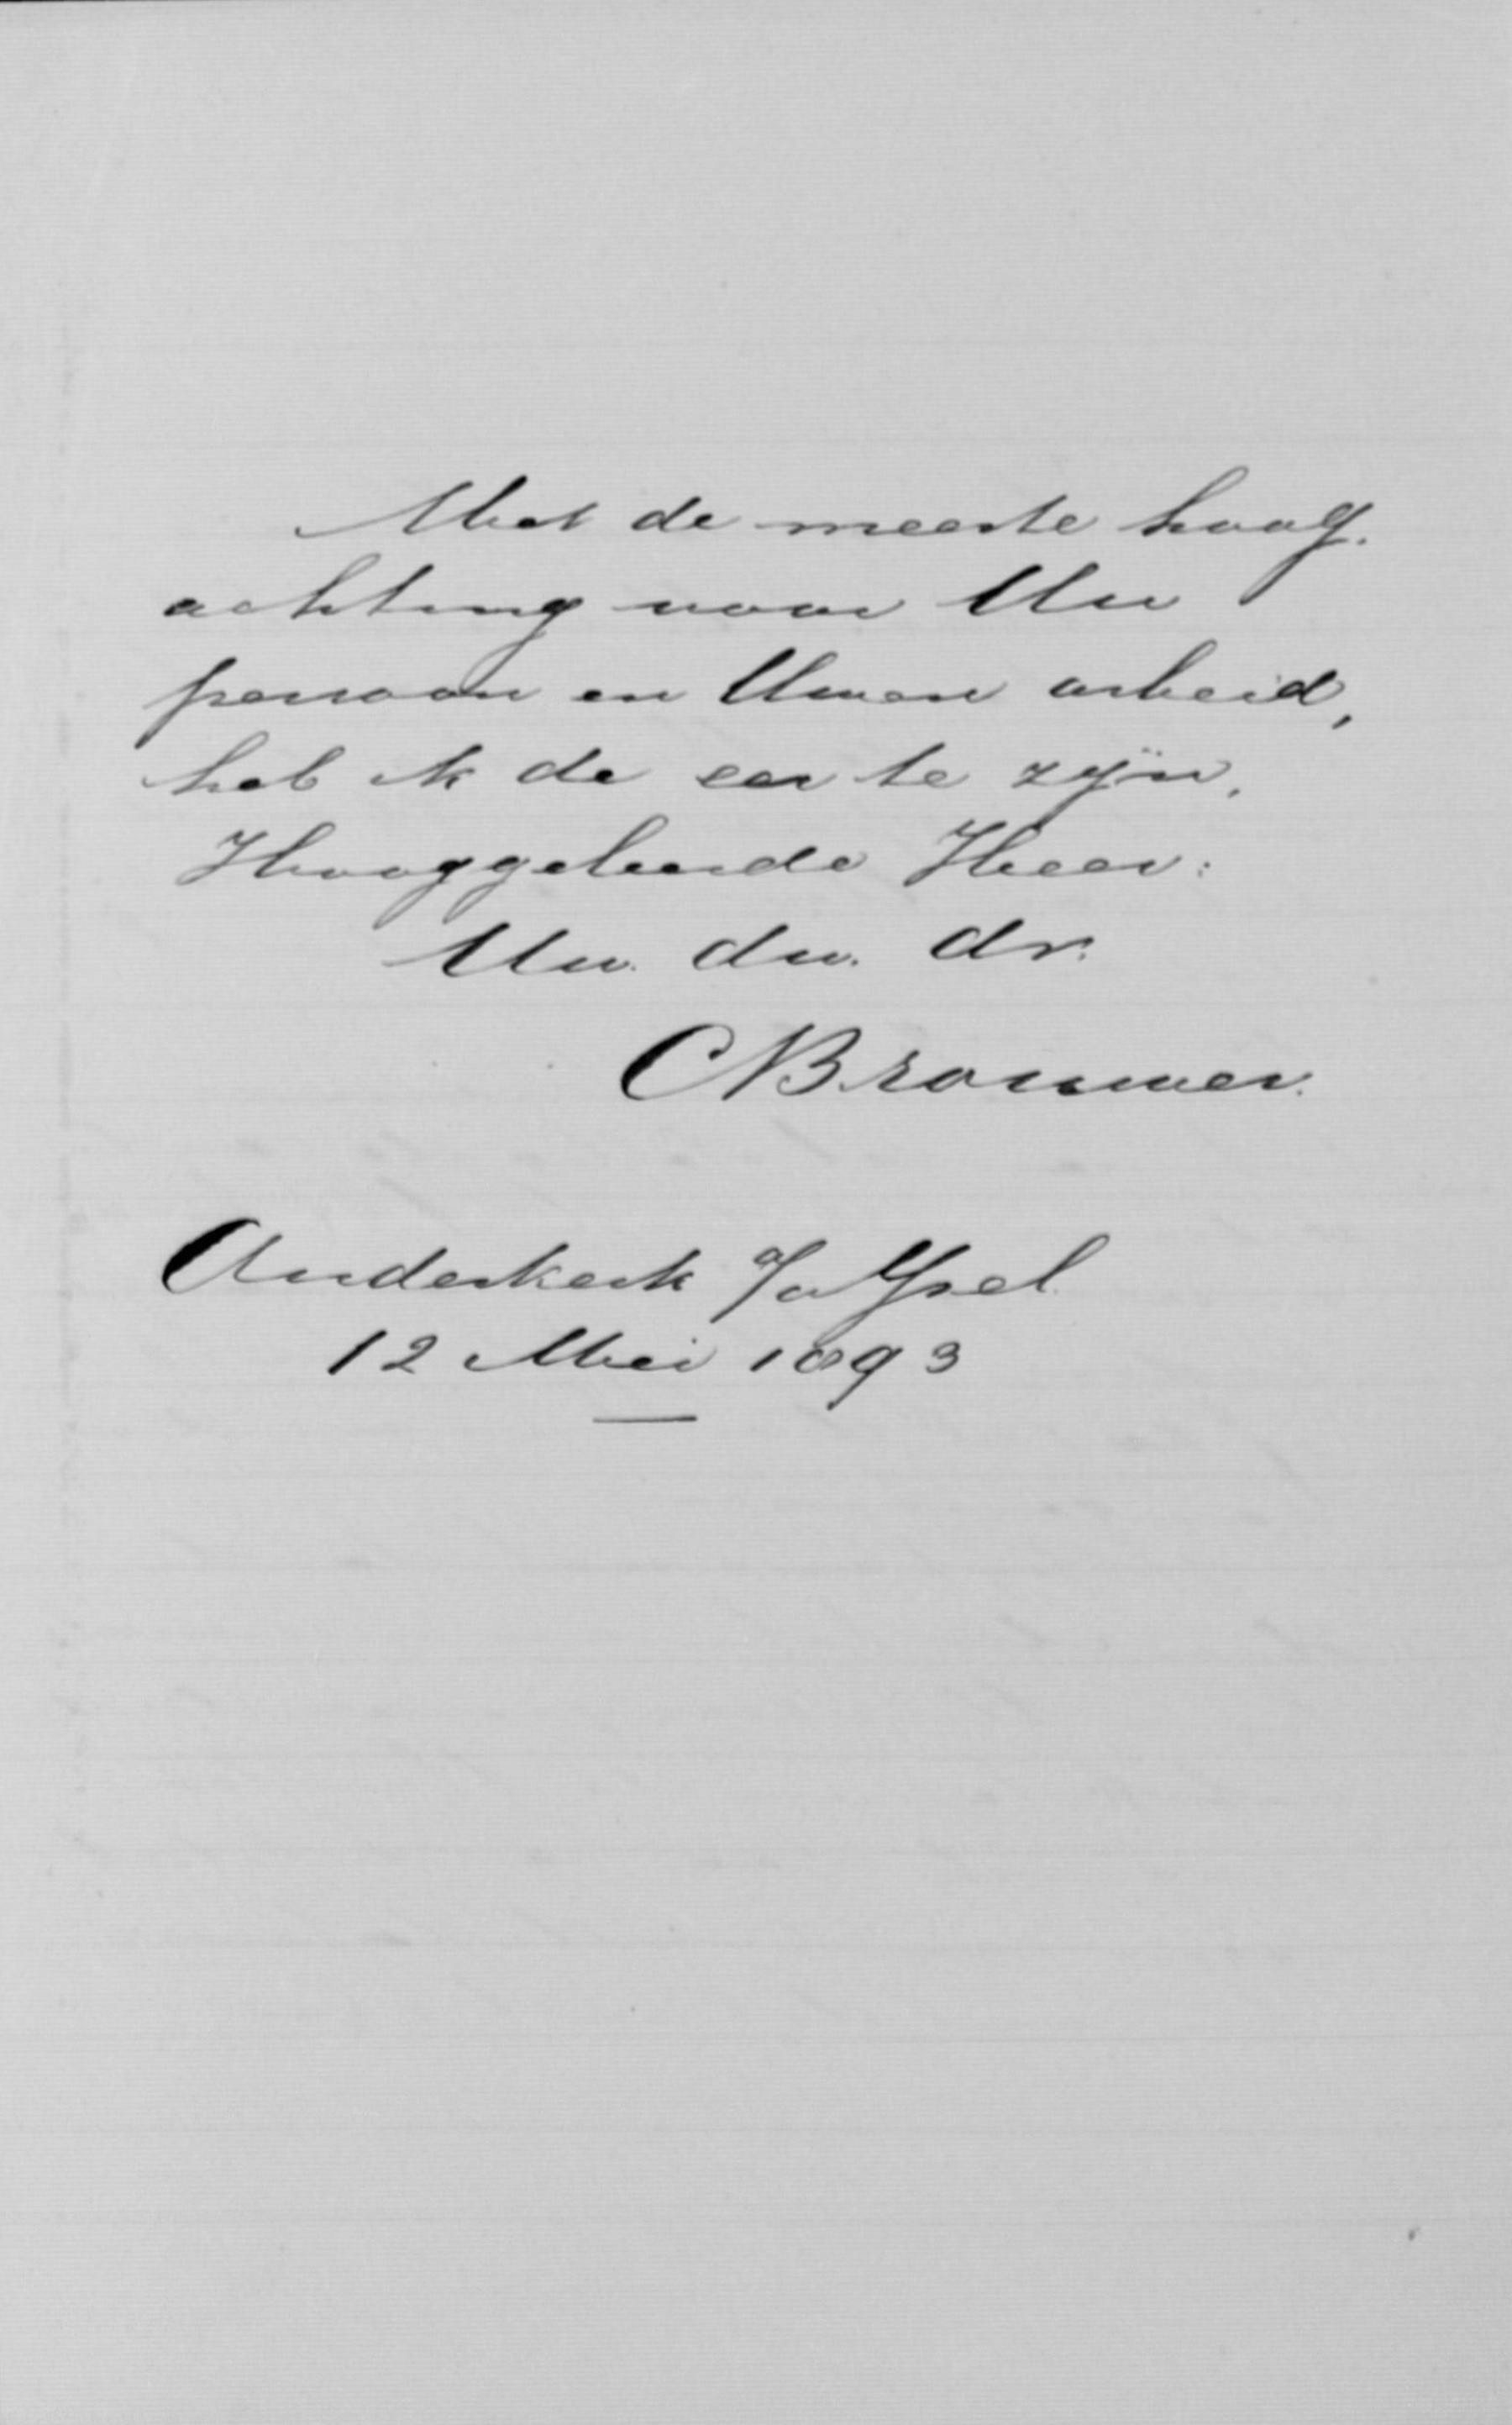 Met de meeste hoog.
achting voor Uw
persoon en Uwen arbeid,
heb ik de eer te zijn,
Hooggeleerde Heer:
Uw. dw. dr.
CBrouwer.
Ouderkerk a/d IJsel
12 Mei 1893